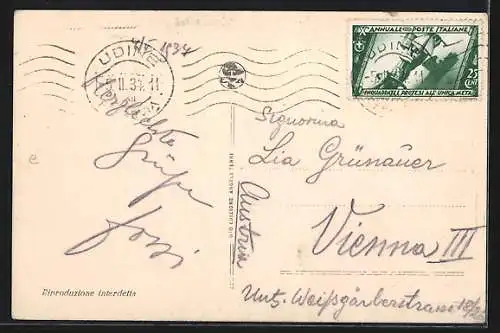 4/5 1934
UDINE
5.II.34.11
X° ANNUALE POSTE ITALIANE
25 CENT
INQUADRATI, PROTESI ALL'UNICA META
UDINE
Herzlichste
Grüße
Signorina
Lia Grünauer
Vienna III
Austria
Unt. Weißgärberstrasse
Riproduzione interdetta
EDIZIONE ANGELO